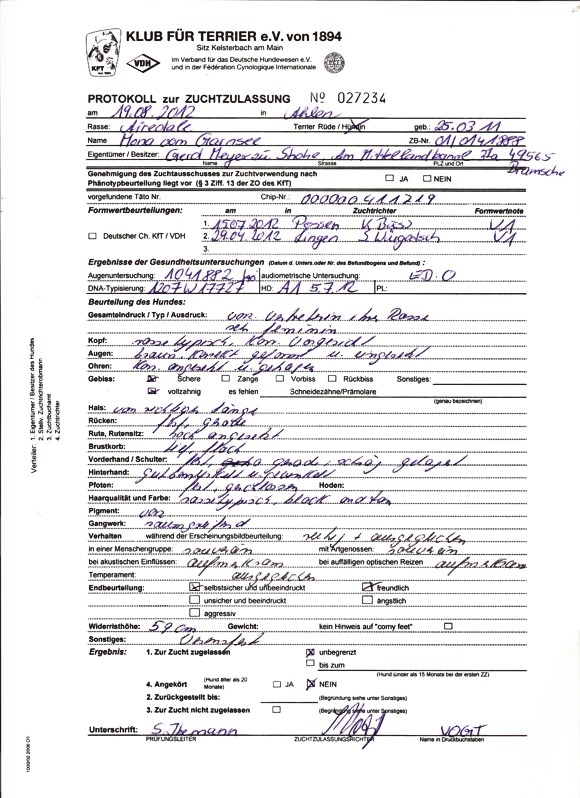 KLUB FÜR TERRIER e.V. von 1894
Sitz Kelsterbach am Main
im Verband für das Deutsche Hundewesen e.V.
und in der Fédération Cynologique Internationale
KFT
VDH
PROTOKOLL zur ZUCHTZULASSUNG Nº 027234
am 19.08.2012 in Ahlen
Rasse: Airedale Terrier Rüde / Hündin geb.: 25.03 11
Name Mona vom ZB-Nr. 01/0141888
Eigentümer / Besitzer: Gerd Meyer zu Am Mittellandkanal 7a 49565
Name Strasse PLZ und Ort Bramsche
Genehmigung des Zuchtausschusses zur Zuchtverwendung nach
Phänotypbeurteilung liegt vor (§ 3 Ziff. 13 der ZO des KfT) JA NEIN
vorgefundene Täto Nr. Chip-Nr.: 000000411219
Formwertbeurteilungen: am in Zuchtrichter Formwertnote
1. 15.07.2012 V1
Deutscher Ch. KfT / VDH 2. 29.04.2012 Lingen V1
3.
Ergebnisse der Gesundheitsuntersuchungen (Datum d. Unters.oder Nr. des Befundbogens und Befund) :
Augenuntersuchung: 1041882 audiometrische Untersuchung: ED. 0
DNA-Typisierung: 1207W17727 HD: A1 5.7.12 PL:
Beurteilung des Hundes:
Gesamteindruck / Typ / Ausdruck: vorz. Vertreterin ihrer Rasse
sehr feminin
Kopf: rassetypisch, korr. vorgesicht
Augen: braun, korrekt geformt u. eingesetzt
Ohren: korr. angesetzt u. getragen
Gebiss: Schere Zange Vorbiss Rückbiss Sonstiges:
vollzahnig es fehlen Schneidezähne/Prämolare
(genau bezeichnen)
Hals: von richtiger Länge
Rücken: fest, gerade
Rute, Rutensitz: hoch angesetzt
Brustkorb: tief, flach
Vorderhand / Schulter: fest, gerade, schräg gelagert
Hinterhand: gut bemuskelt u. gewinkelt
Pfoten: fest, geschlossen Hoden:
Haarqualität und Farbe: rassetypisch, black and tan
Pigment: vorz
Gangwerk: raumgreifend
Verhalten während der Erscheinungsbildbeurteilung: ruhig + ausgeglichen
in einer Menschengruppe: souverän mit Artgenossen: souverän
bei akustischen Einflüssen: aufmerksam bei auffälligen optischen Reizen aufmerksam
Temperament: ausgeglichen
Endbeurteilung: selbstsicher und unbeeindruckt freundlich
unsicher und beeindruckt ängstlich
aggressiv
Widerristhöhe: 59 cm Gewicht: kein Hinweis auf "corny feet"
Sonstiges:
Ergebnis: 1. Zur Zucht zugelassen unbegrenzt
bis zum
(Hund jünger als 15 Monate bei der ersten ZZ)
4. Angekört (Hund älter als 20 Monate) JA NEIN
2. Zurückgestellt bis: (Begründung siehe unter Sonstiges)
3. Zur Zucht nicht zugelassen (Begründung siehe unter Sonstiges)
Unterschrift: VOGT
PRÜFUNGSLEITER ZUCHTZULASSUNGSRICHTER Name in Druckbuchstaben
Verteiler: 1. Eigentümer / Besitzer des Hundes
2. Stellv. Zuchtrichterobmann
3. Zuchtbuchamt
4. Zuchtrichter